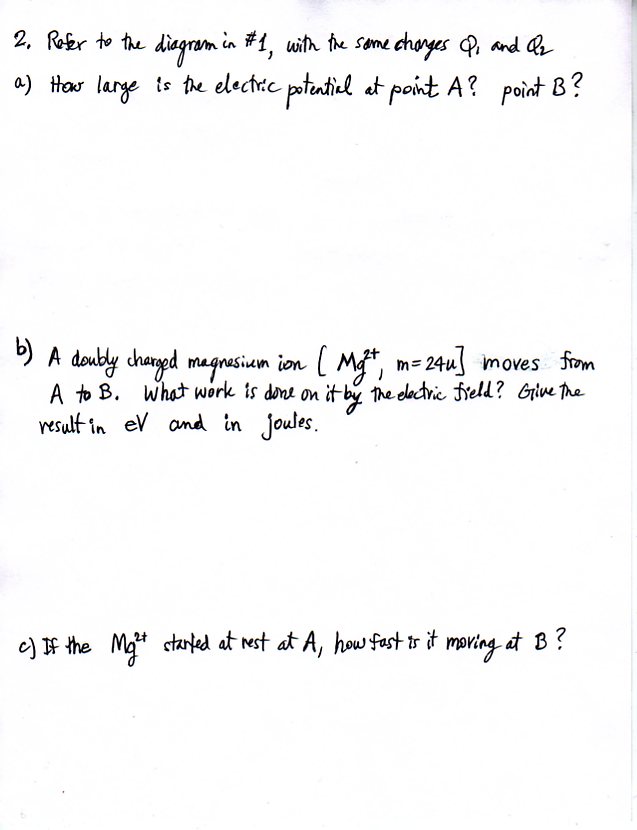 2. Refer to the diagram in #1, with the same charges Q₁ and Q₂
a) How large is the electric potential at point A? point B?
b) A doubly charged magnesium ion [ Mg²⁺, m=24u] moves from
A to B. What work is done on it by the electric field? Give the
result in eV and in joules.
c) If the Mg²⁺ started at rest at A, how fast is it moving at B?